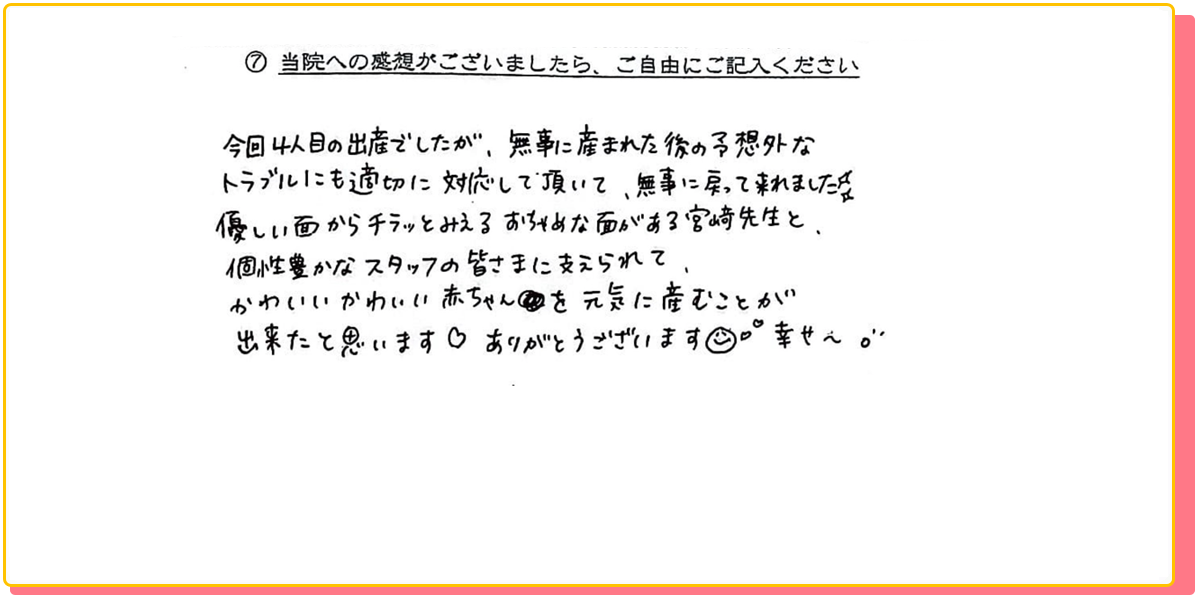 ⑦ 当院への感想がございましたら、ご自由にご記入ください
今回4人目の出産でしたが、無事に産まれた後の予想外な
トラブルにも適切に対応して頂いて、無事に戻って来れました☆
優しい面からチラッとみえるおちゃめな面がある宮﨑先生と、
個性豊かなスタッフの皆さまに支えられて、
かわいいかわいい赤ちゃんを元気に産むことが
出来たと思います♡ ありがとうございます☺ 幸せ〜